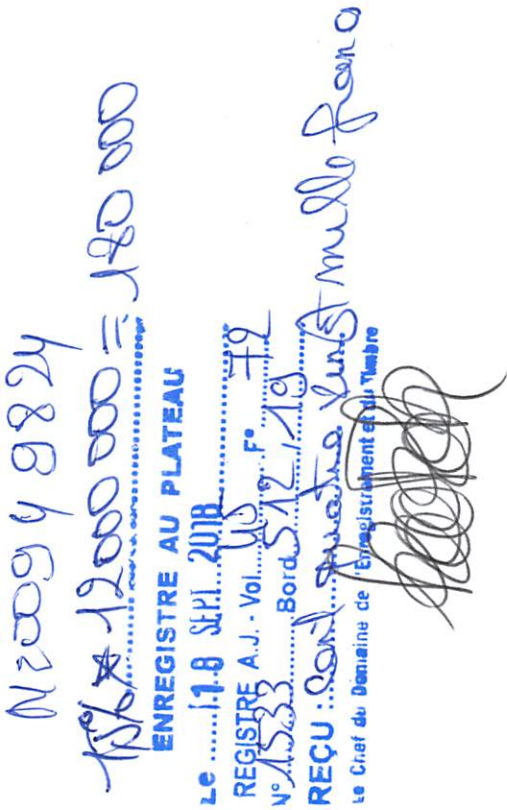 N200949824
1,5% * 12000 000 = 180 000
ENREGISTRE AU PLATEAU
Le ...... 18 SEPT. 2018
REGISTRE A.J. - Vol. 45 F° 72
N° 1533 Bord 512 / 19
REÇU : Cent quatre vingt mille francs
Le Chef du Domaine de l'Enregistrement et du Timbre